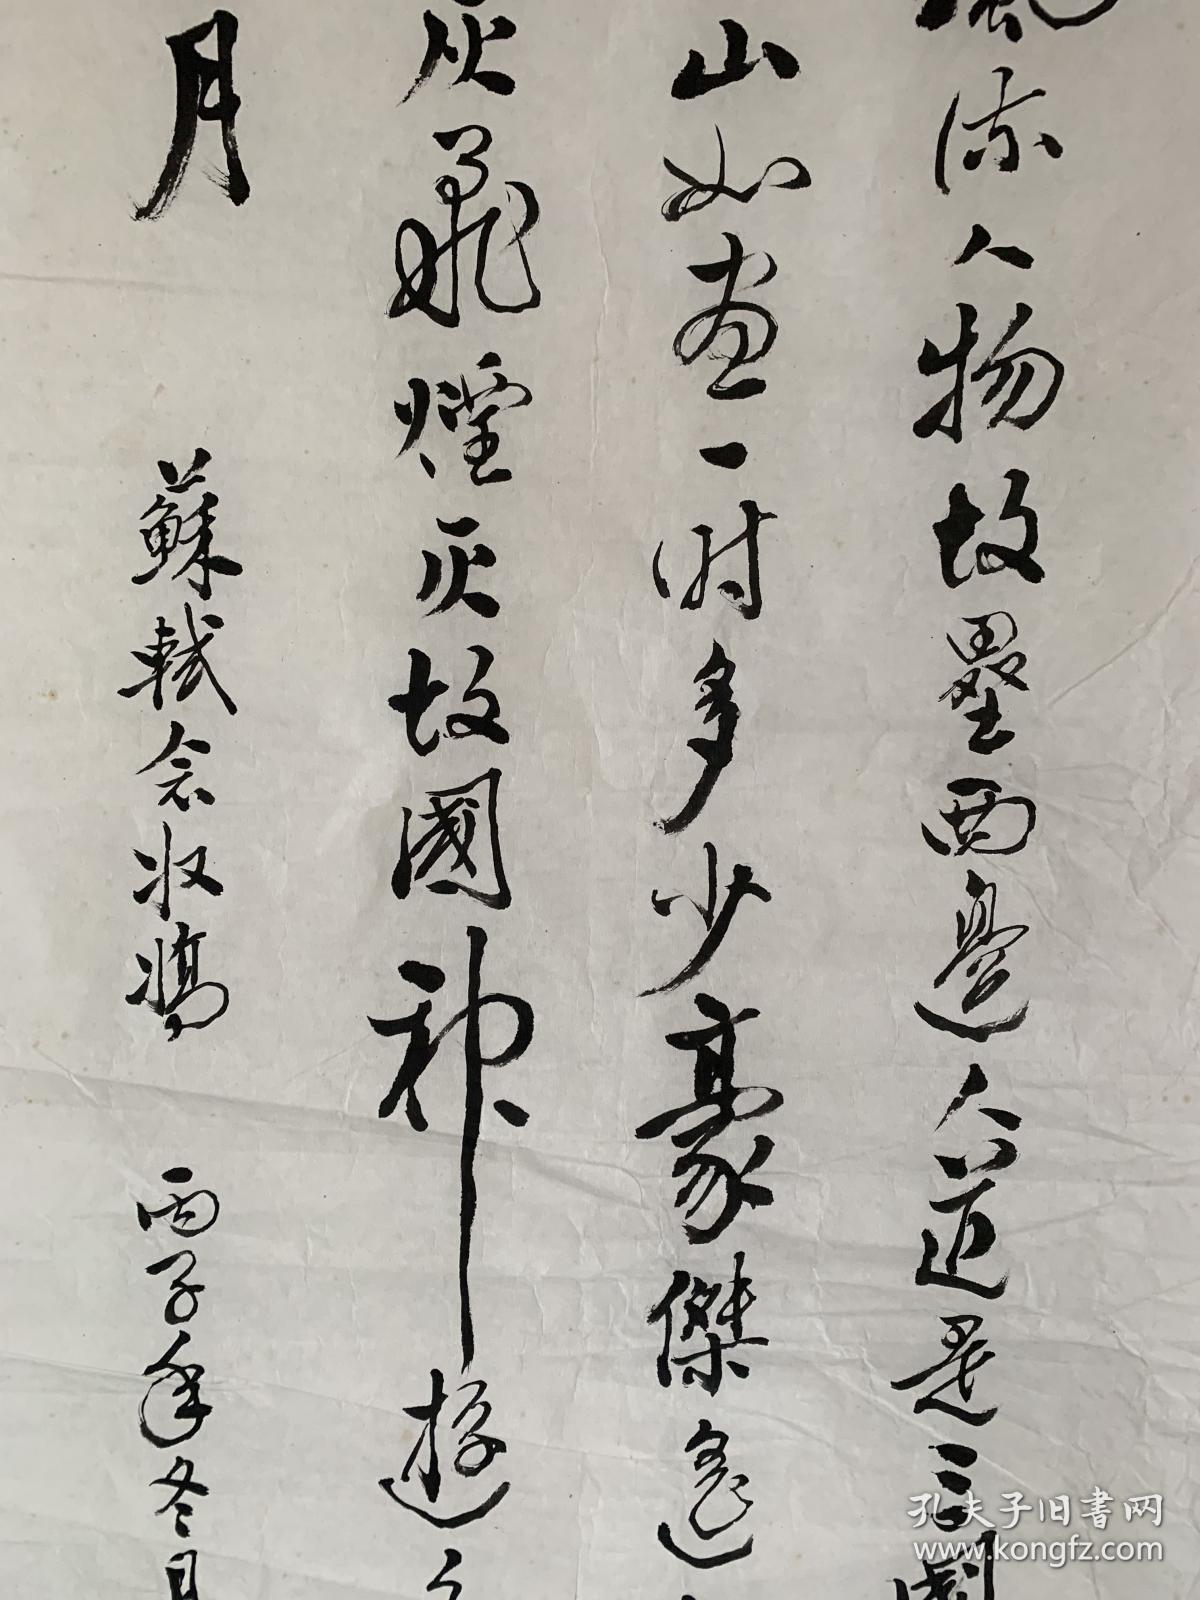 風流人物故壘西邊人道是三國
山如畫一時多少豪傑遙
灰飛煙灭故國神遊
月
蘇軾念奴嬌 丙子年冬月
孔夫子旧書网
www.kongfz.com